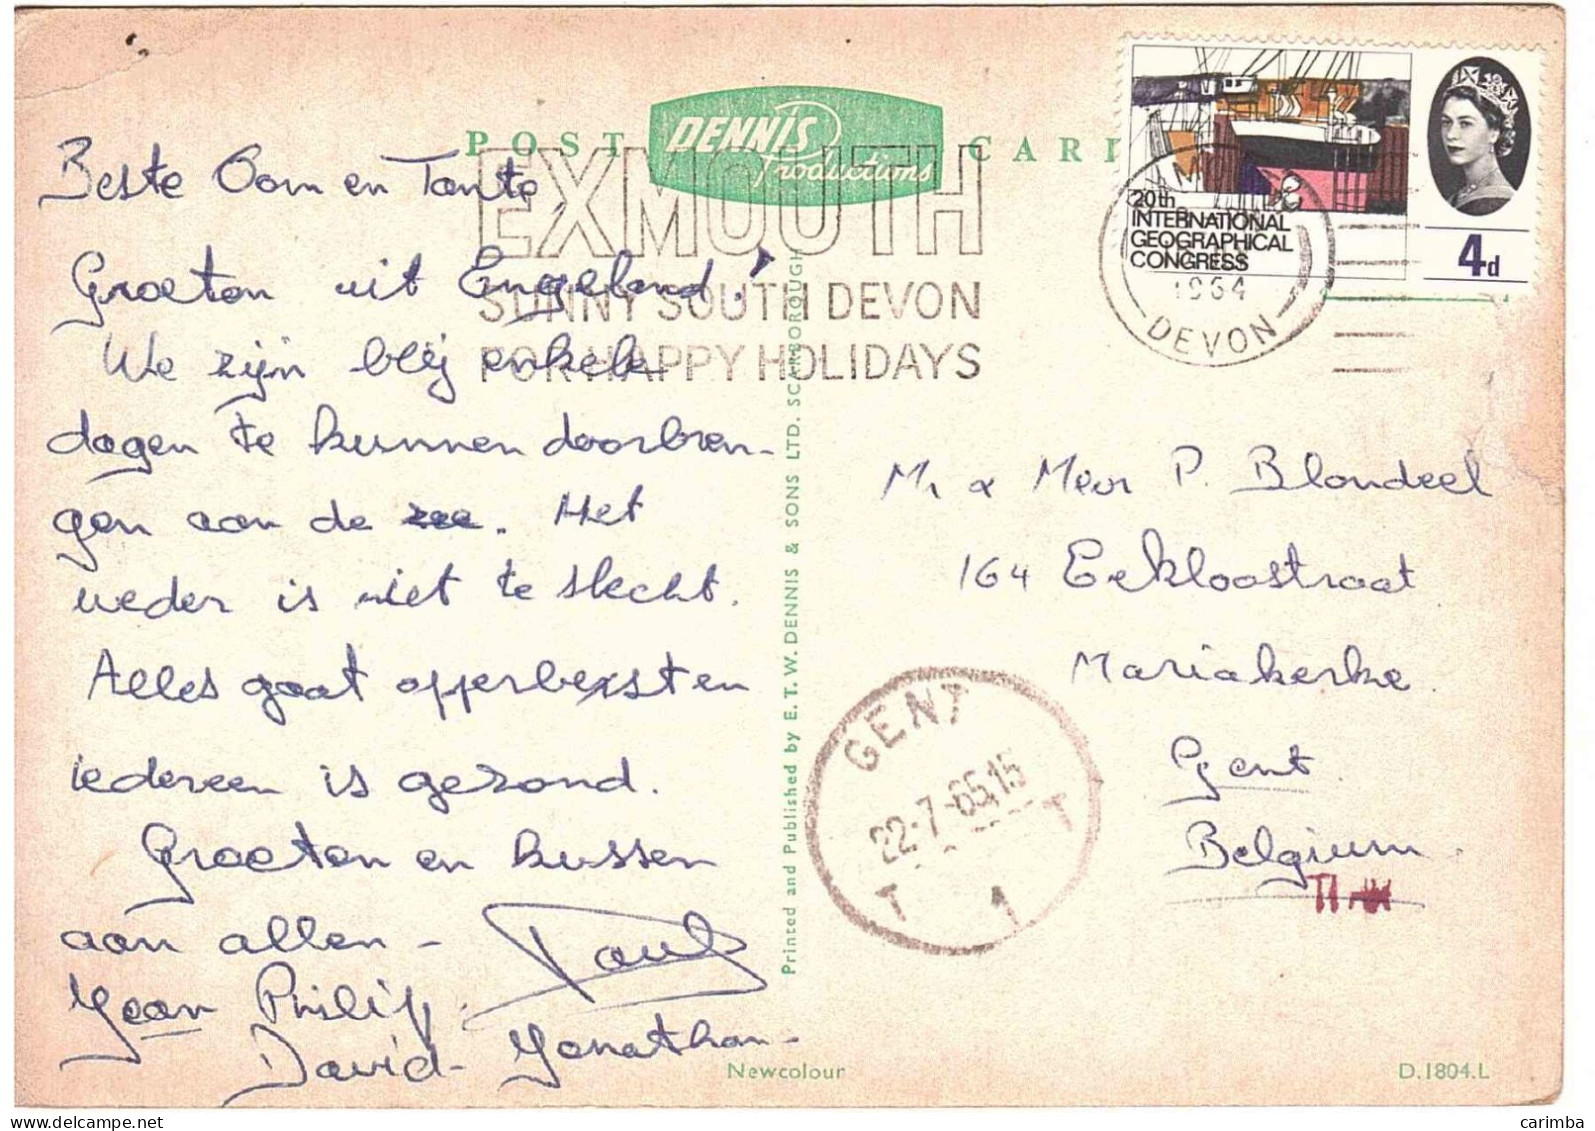 POST CARD
DENNIS
Productions
EXMOUTH
SUNNY SOUTH DEVON
FOR HAPPY HOLIDAYS
20th
INTERNATIONAL
GEOGRAPHICAL
CONGRESS
4d
1964
DEVON
Beste Oom en Tante,
Groeten uit Engeland!
We zijn blij enkele
dagen te kunnen doorbren-
gen aan de zee. Het
weder is niet te slecht.
Alles gaat opperbest en
iedereen is gezond.
Groeten en kussen
aan allen - Paul
Jean Philip.
David - Jonathan -
Printed and Published by E. T. W. DENNIS & SONS LTD. SCARBOROUGH
Mr & Mevr P. Blondeel
164 Eekloostraat
Mariakerke
Gent.
Belgium.
GENT
22-7-65.15
T T
1
Newcolour
D.1804.L
delcampe.net
carimba